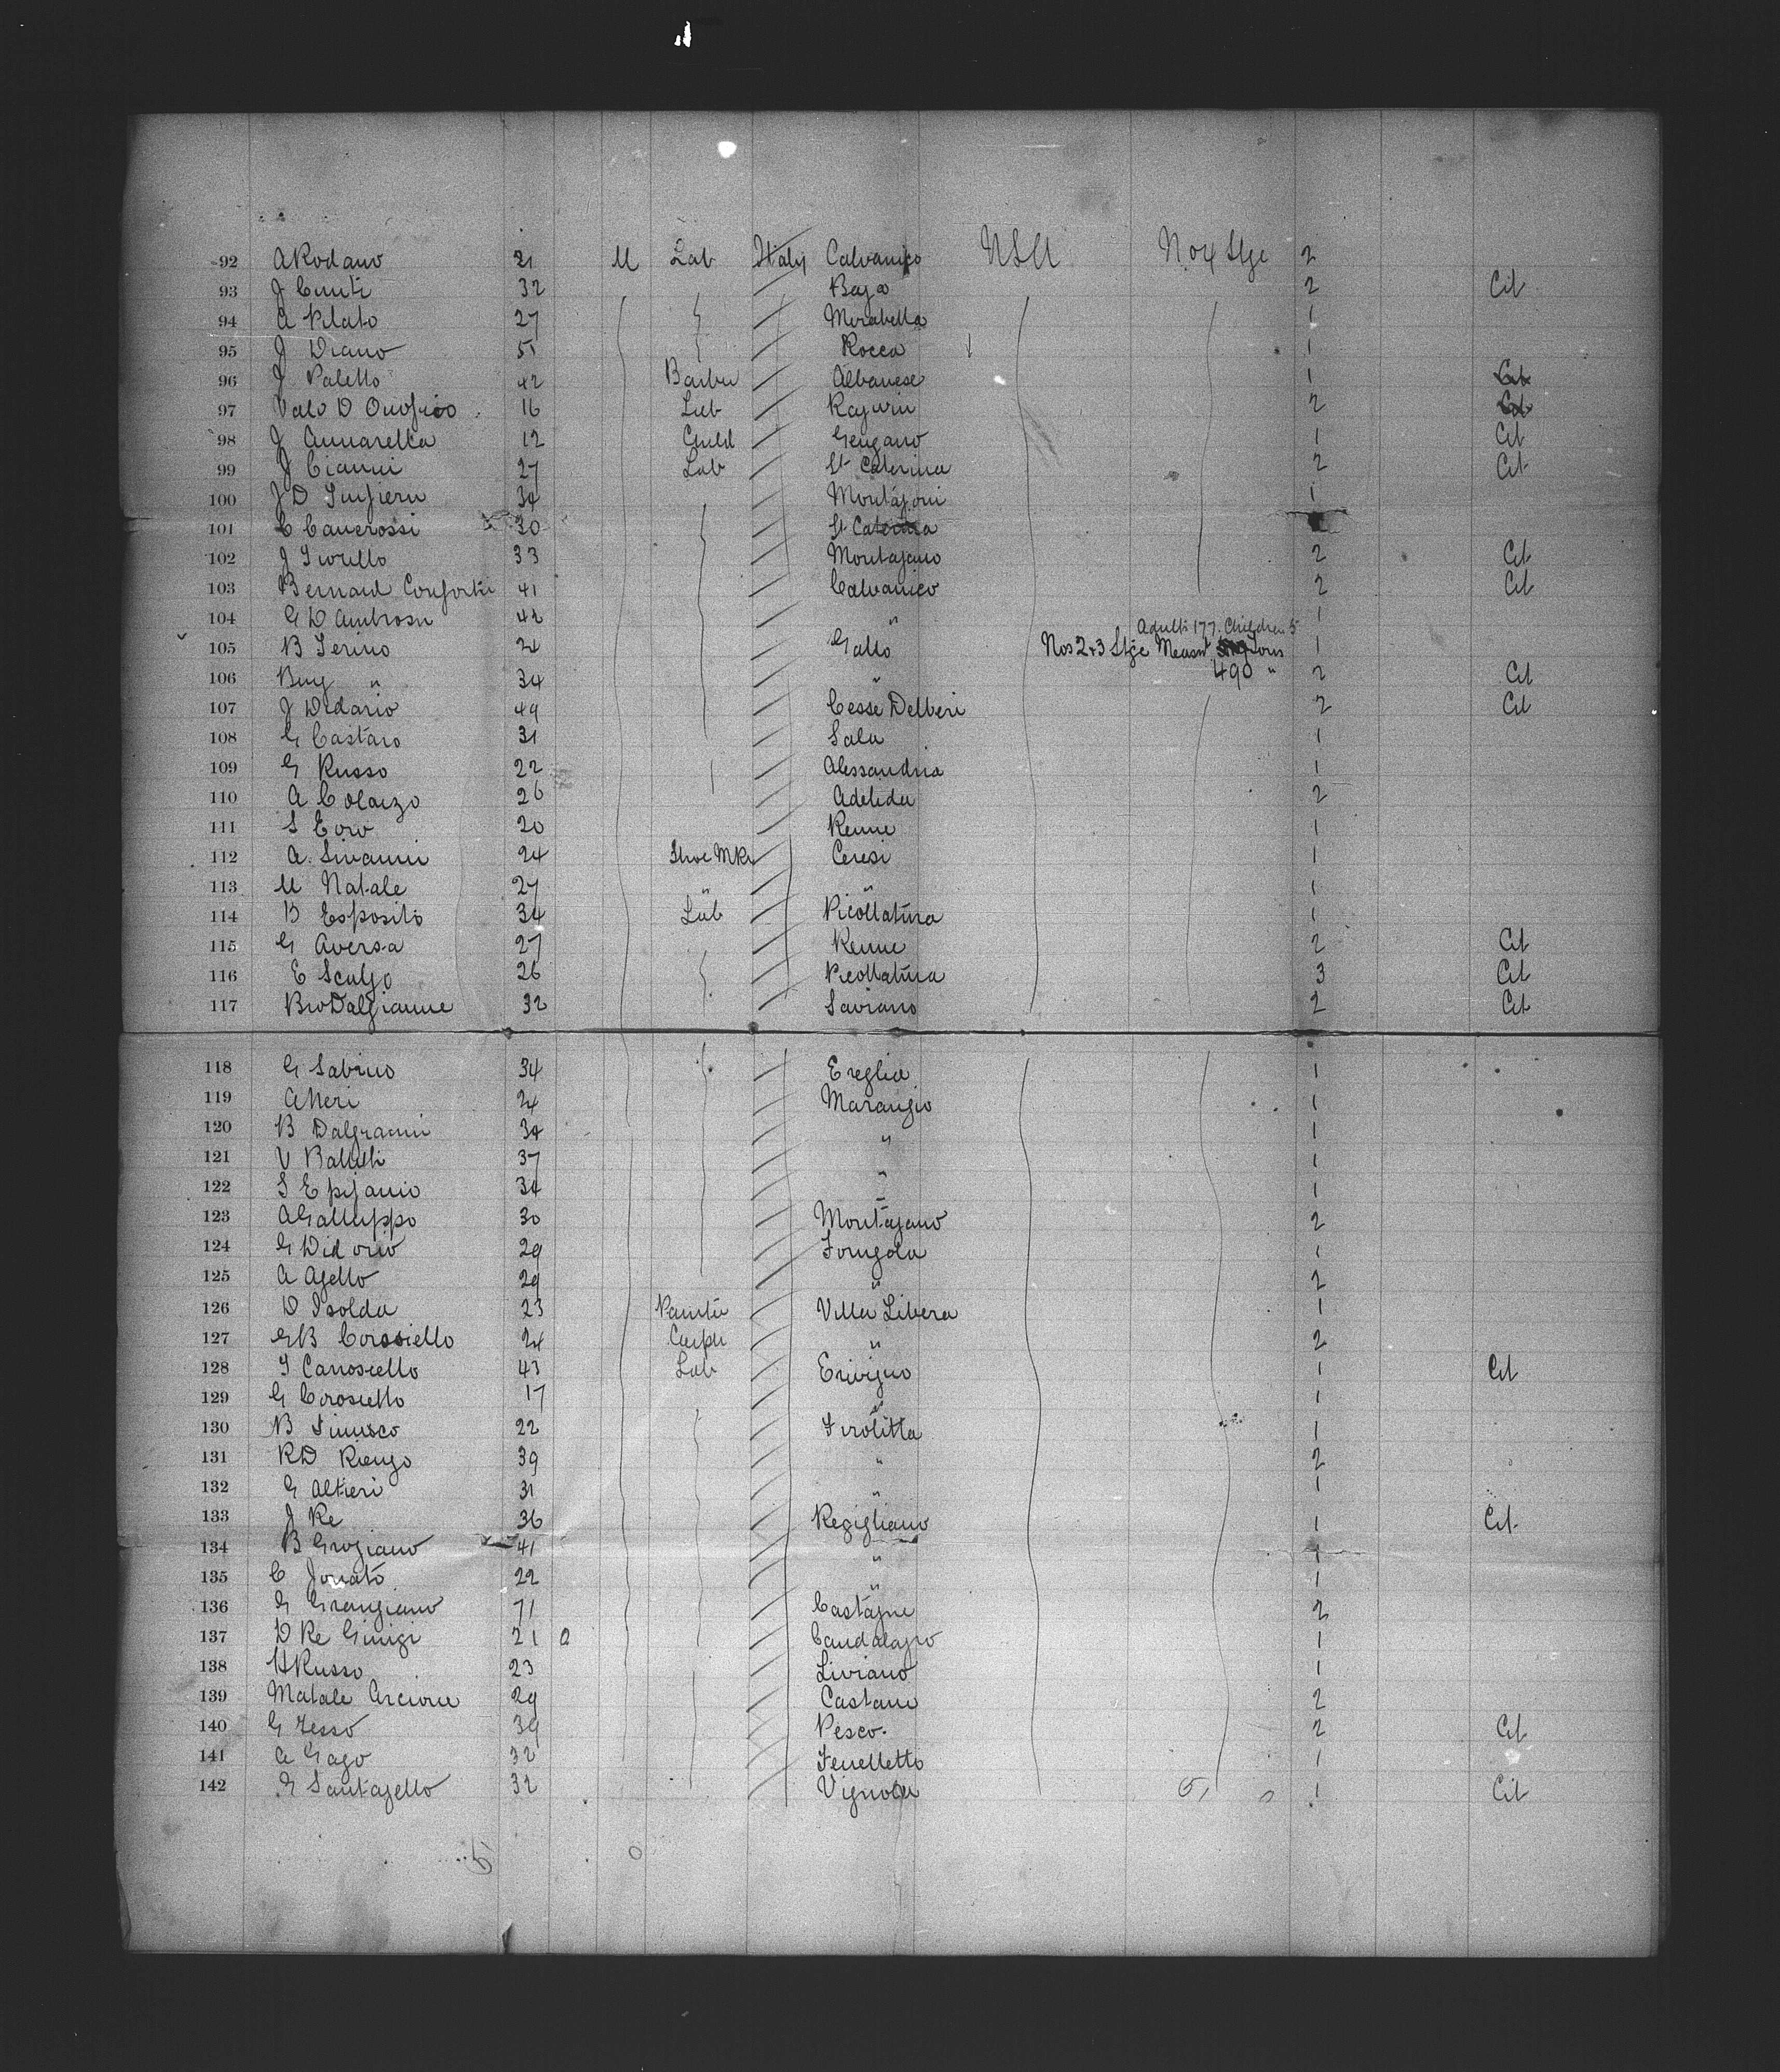 92 A Rodano 21 M Lab Italy Calvanico USA No 4 Stge 2
93 J Cunti 32 Baja 2 Cit
94 A Pilato 27 Mirabella 1
95 J Diano 51 Rocca 1
96 J Paletto 42 Barber Albanese 1 Cit
97 D Onofrio 16 Lab 2 Cit
98 J Annarella 12 Child Gengano 1 Cit
99 J Cianni 27 Lab St Caterina 2 Cit
100 J D 34 1
101 C Canerossi 30 St Caterina
102 J Iorillo 33 Montajano 2 Cit
103 Bernard Conforti 41 Calvanico 2 Cit
104 G D Ambrosu 42 " 1
Adults 177. Children 5
105 B Ierino 24 Gallo Nos 2 & 3 Stge Measnt Tons 1
106 " 34 " 490 " 2 Cit
107 J Didario 49 Cesse Delberi 2 Cit
108 G Castaro 31 Sala 1
109 G Russo 22 Alessandria 1
110 A Colaizo 26 Adelida 2
111 S 20 Renne 1
112 A. Sivanni 24 Shoe Mkr Ceresi 1
113 M Natale 27 " " 1
114 B Esposito 34 Lab Picollatina 1
115 G Aversa 27 Renne 2 Cit
116 E Scalzo 26 Picollatina 3 Cit
117 32 Saviano 2 Cit
118 G Sabino 34 Ereglia 1
119 A Neri 24 Marangio 1
120 B 34 " 1
121 V 37 " 1
122 S Epifanio 34 " 1
123 A Galluppo 30 Montajano 2
124 G Didorio 29 1
125 A Ajello 29 " 2
126 D Isolda 23 Painter Villa Libera 1
127 G B Corosiello 24 Carpr " 2
128 43 Lab 1 Cit
129 G Corosiello 17 " 1
130 B 22 Tirolitta 1
131 R D Rienzo 39 " 2
132 G Altieri 31 " 1
133 J Re 36 Regigliano 1 Cit
134 B 41 " 1
135 C Jonato 22 " 1
136 G Grangiano 71 Castagne 2
137 D Re 21 1
138 H Russo 23 Liviano 1
139 Matale 29 Castane 2
140 G Tesso 39 Pesco. 2 Cit
141 A Gago 32 Fenelletto 1
142 G Santajello 32 Vignola 1 Cit